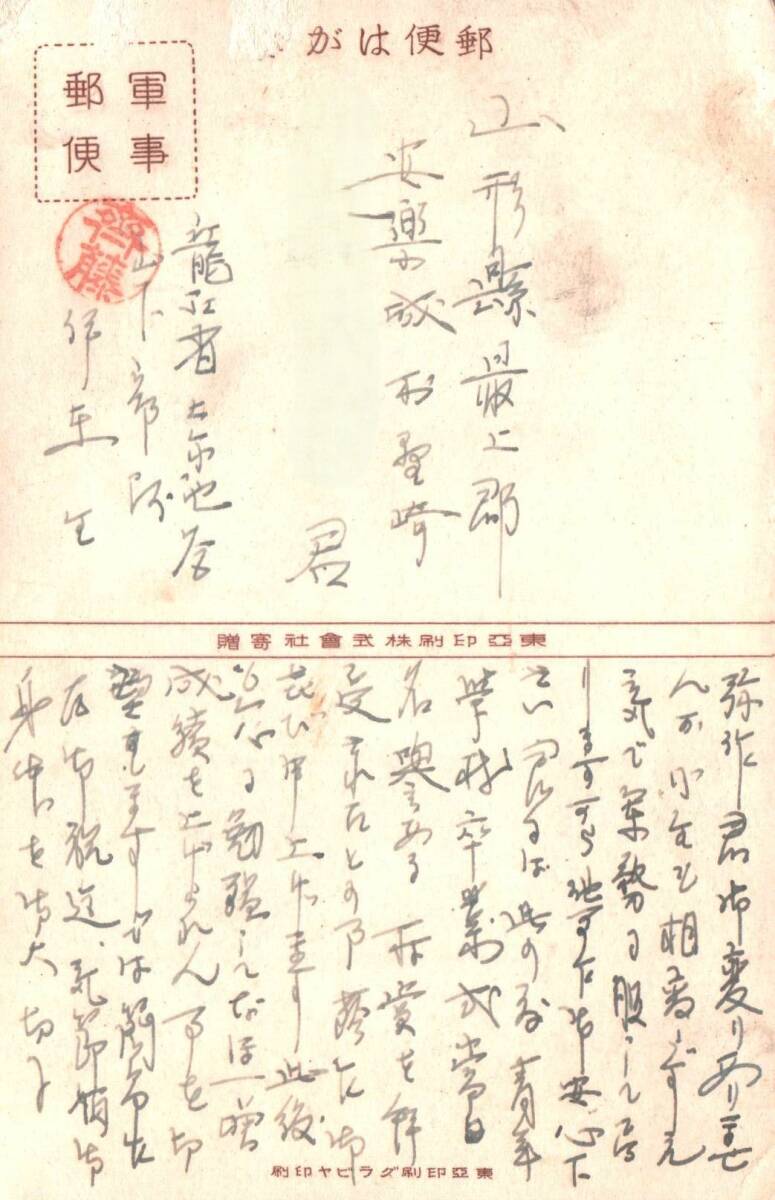 郵便はが
軍事
郵便
山形縣最上郡
安樂城村野崎
君
龍江省
山下部隊
伊東生
齋藤
東亞印刷株式會社寄贈
弥作君御変りありませ
んか小生も相変らず元
気で軍務に服して居
りますから他事乍ら御安心下
さい 君には此の度青年
学校卒業式当日
名誉ある 称賞を
受されたとの事 蔭乍ら御
喜び申上げます 此後
も益々勉強してなほ一層
成績を上げられん事を御
望みします では簡単
乍ら御祝迄、 御
身体を御大切に
東亞印刷グラビヤ印刷